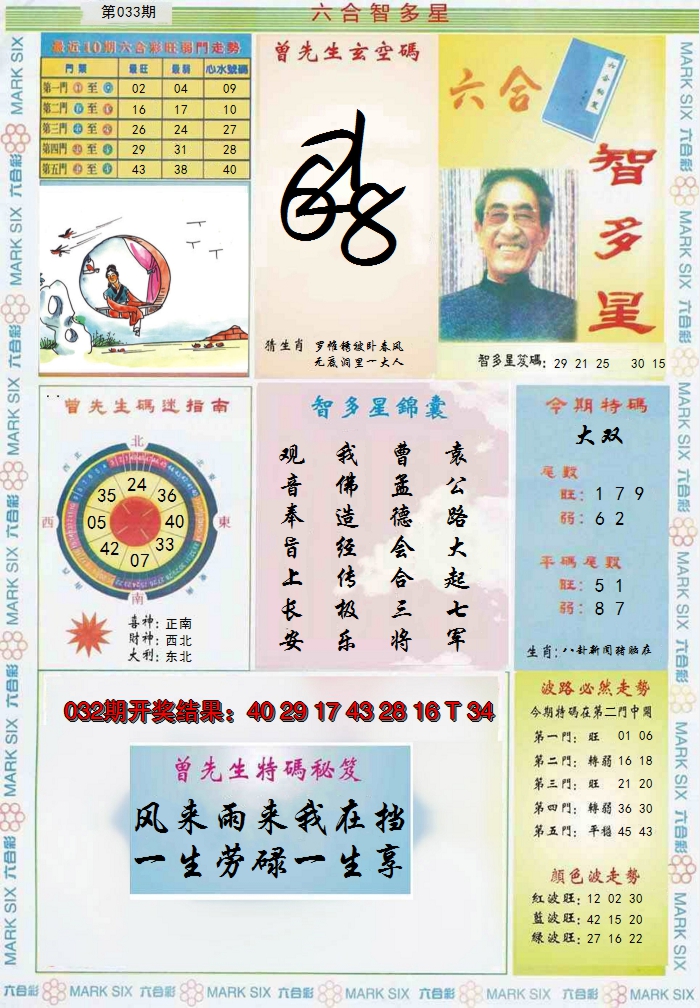 第033期
六合智多星
最近10期六合彩旺弱門走勢
門類 最旺 最弱 心水號碼
第一門 至 02 04 09
第二門 至 16 17 10
第三門 至 26 24 27
第四門 至 29 31 28
第五門 至 43 38 40
曾先生玄空碼
猜生肖 罗帷锈被卧春风
无底洞里一大人
六合
智多星
智多星笈碼: 29 21 25 30 15
曾先生碼迷指南
北
西
東
南
24
35 36
05 40
42 33
07
喜神: 正南
財神: 西北
大利: 东北
智多星錦囊
袁公路大起七军
曹孟德会合三将
我佛造经传极乐
观音奉旨上长安
今期特碼
大双
尾數
旺: 1 7 9
弱: 6 2
平碼尾數
旺: 5 1
弱: 8 7
生肖: 八卦新闻猪脑在
032期开奖结果: 40 29 17 43 28 16 T 34
曾先生特碼秘笈
风来雨来我在挡
一生劳碌一生享
波路必然走勢
今期特碼在第二門中開
第一門: 旺 01 06
第二門: 轉弱 16 18
第三門: 旺 21 20
第四門: 轉弱 36 30
第五門: 平穩 45 43
顏色波走勢
紅波旺: 12 02 30
藍波旺: 42 15 20
綠波旺: 27 16 22
MARK SIX 六合彩